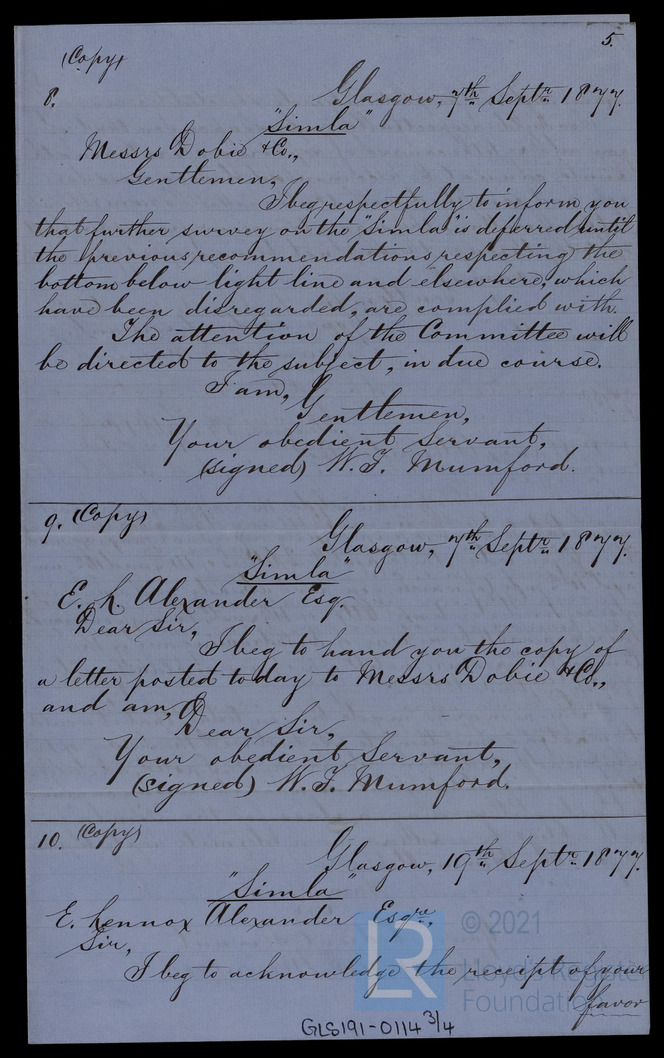 5.
(Copy)
8.
Glasgow, 7th Septr. 1877.
"Simla"
Messrs Dobie & Co.,
Gentlemen,
I beg respectfully to inform you
that further survey on the "Simla" is deferred until
the previous recommendations respecting the
bottom below light line and elsewhere, which
have been disregarded, are complied with.
The attention of the Committee will
be directed to the subject, in due course.
I am,
Gentlemen,
Your obedient Servant,
(signed) W. T. Mumford.
9. (Copy)
Glasgow, 7th Septr. 1877.
"Simla"
E. L. Alexander Esq.
Dear Sir,
I beg to hand you the copy of
a letter posted to day to Messrs Dobie & Co.,
and am,
Dear Sir,
Your obedient Servant,
(signed) W. T. Mumford.
10. (Copy)
Glasgow, 19th Septr. 1877.
"Simla"
E. Lennox Alexander Esqre.,
Sir,
I beg to acknowledge the receipt of your
favor
LR
© 2021
Lloyd's Register
Foundation
GLS191-0114 3/4